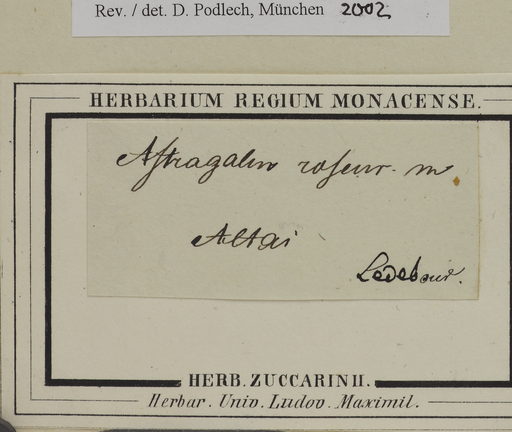 Rev. / det. D. Podlech, München 2002
HERBARIUM REGIUM MONACENSE.
Astragalus roseus. m
Altai
Ledebour.
HERB. ZUCCARINII.
Herbar. Univ. Ludov. Maximil.